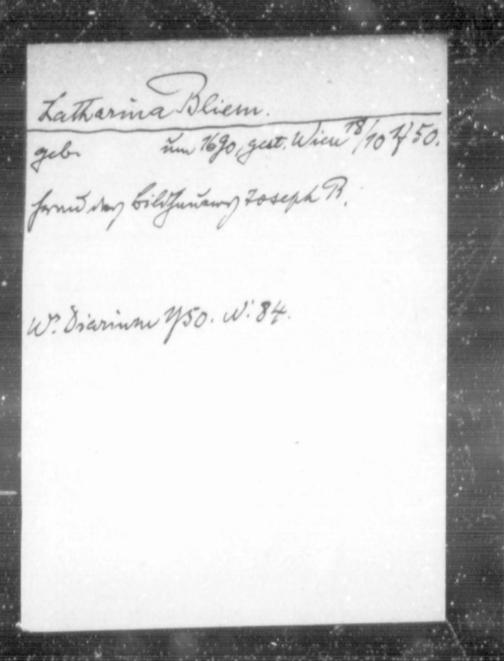 Katharina Bliem.
geb. um 1690, gest. Wien 18/10 1750.
Frau des Bildhauers Joseph B.
Wr. Diarium 1750. Nr. 84.